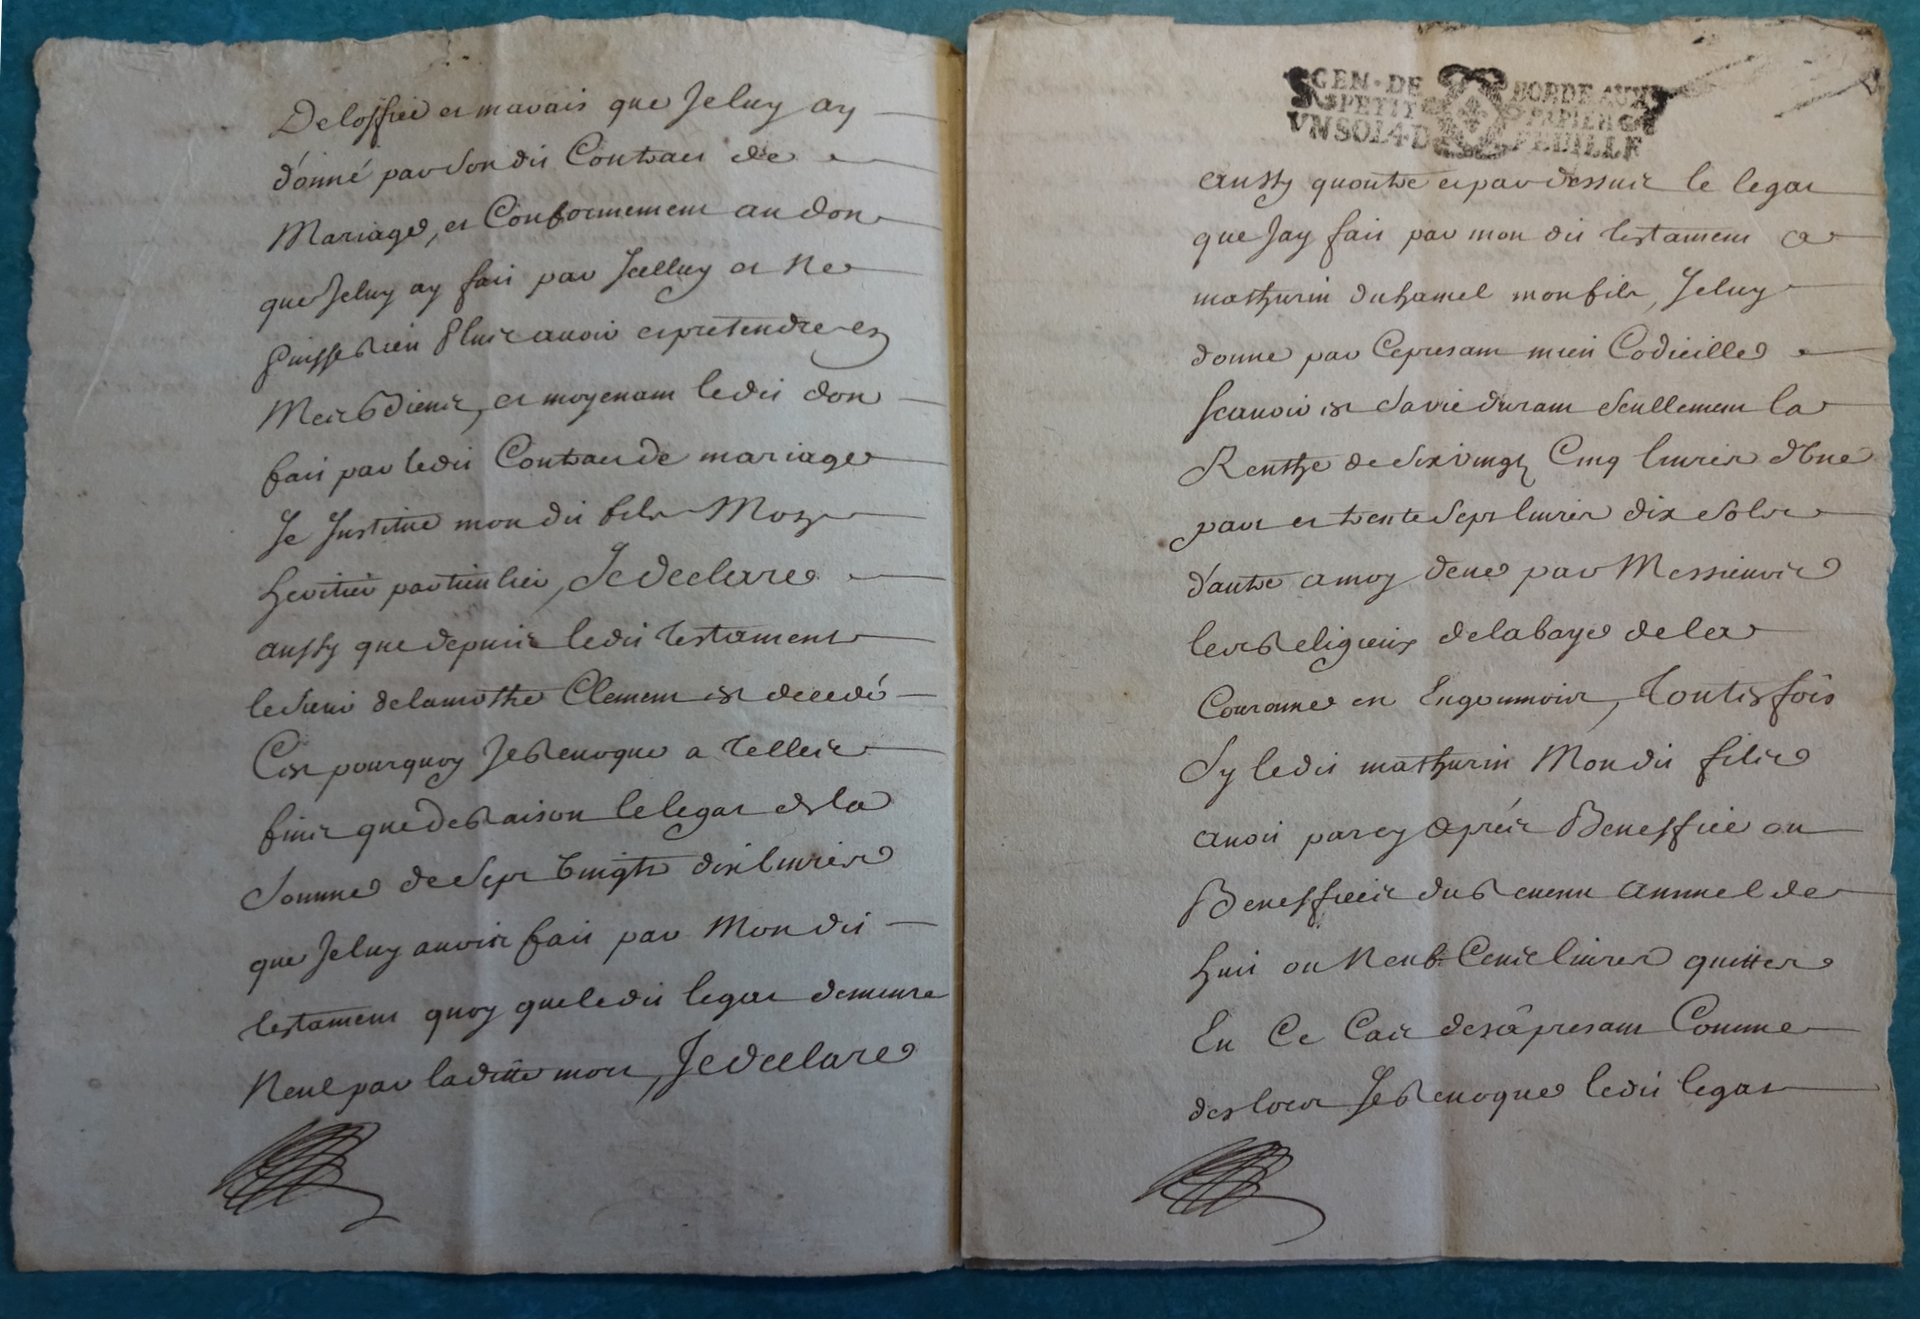 De loffice et marais que Je luy ay
donné par son dit Contract de
Mariage, et Conformement au don
que Je luy ay fait par Jcelluy et Ne
Puisse rien Plus avoir et pretendre en
Mes biens, et moyenant le dit don
fait par le dit Contract de mariage
Je Jnstitue mon dit fils Mon
heritier particulier, Je declare
aussy que depuis le dit testament
le sieur delamothe Clement est decedé
C'est pourquoy Je Revoque a telles
fins que de Raison le legat de la
somme de sept vingts dix livres
que Je luy avois fait par Mon dit
testament quoy que le dit legat demeure
Neul par la ditte mort, Je declare
GEN · DE BORDEAUX
PETIT PAPIER
VN SOL 4 D FEUILLE
aussy quoutre et par dessus le legat
que Jay fait par mon dit testament a
mathurin duhamel mon fils, Je luy
donne par Ce present mien Codicille
scavoir est sa vie durant seullement la
Renthe de six vingt Cinq livres d'une
part et trente sept livres dix sols
d'autre a moy deue par Messieurs
les Religieux de labaye de la
Couronne en Engoumois, Toutesfois
Sy le dit mathurin Mon dit fils
avoit par cy apres Beneffice ou
Beneffices du Revenu annuel de
huit ou Neuf Cens livres quittes
En Ce Cas des a present Comme
des lors Je Revoque le dit legat